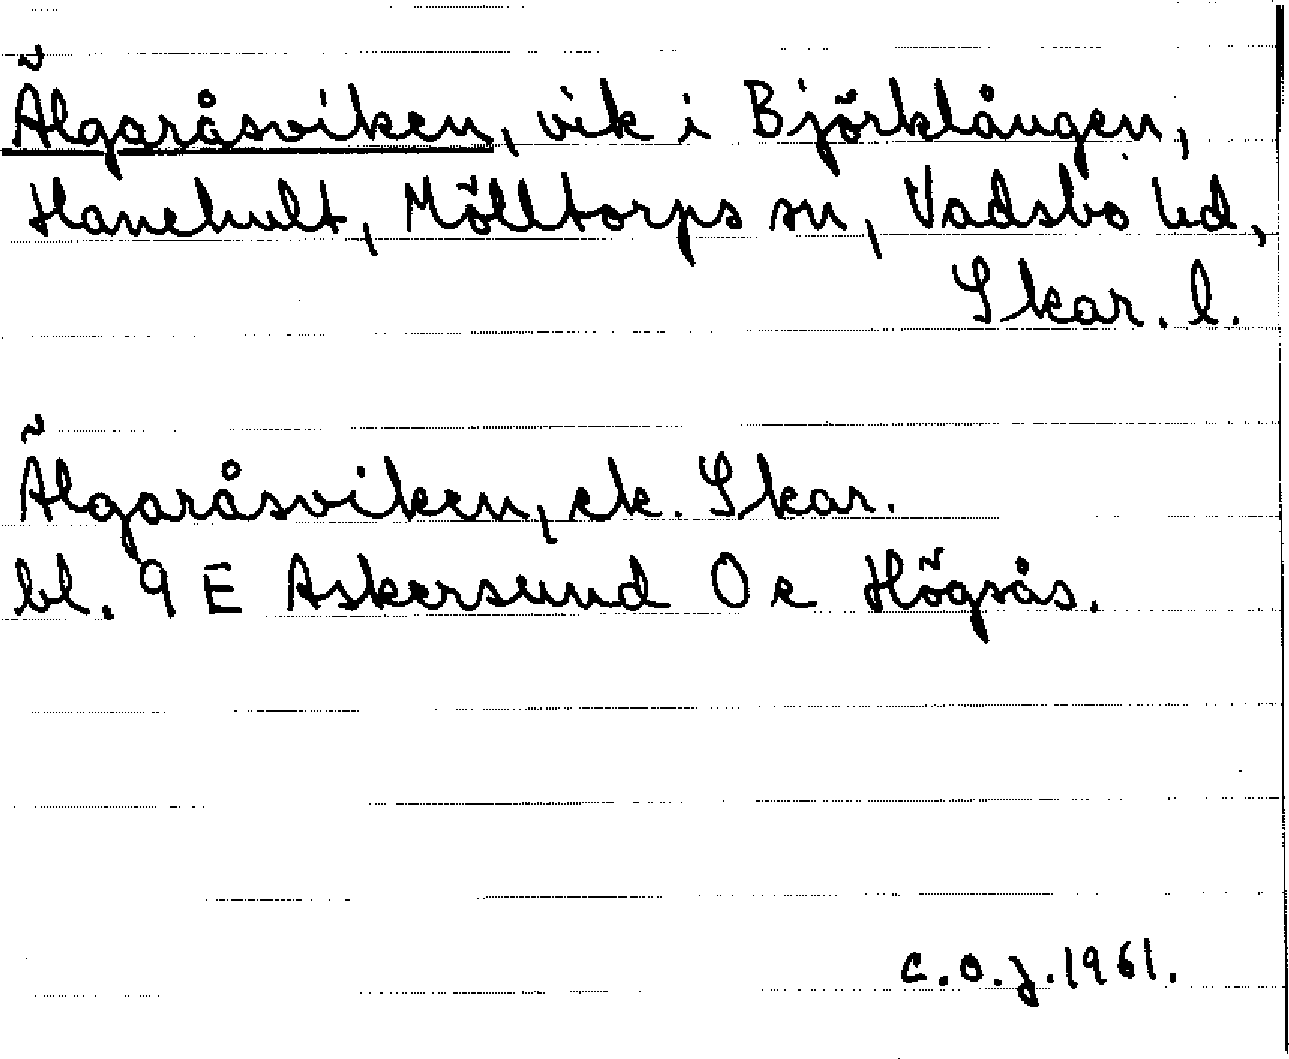 Älgaråsviken, vik i Björklången,
Hanehult, Mölltorps sn, Vadsbo hd,
Skar. l.
Älgaråsviken, ek. Skar.
bl. 9 E Askersund 0 e Högsås.
C.O.J. 1961.